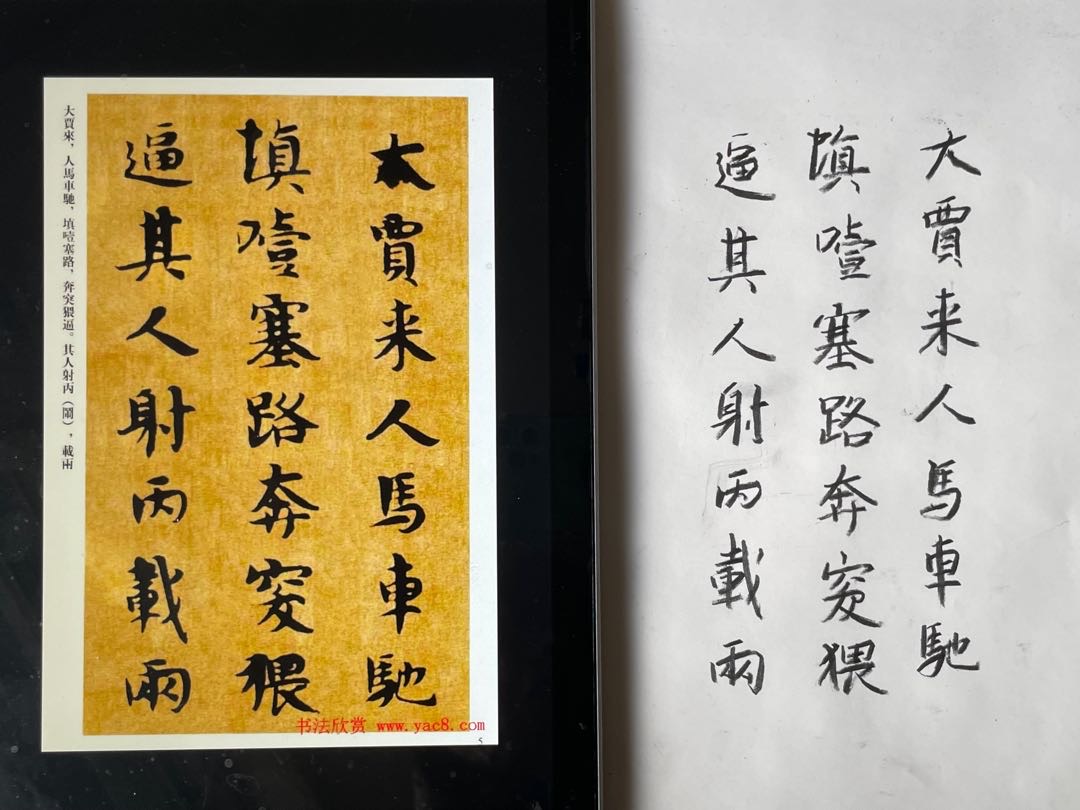 大賈來，人馬車馳，填噎塞路，奔突猥逼。其人射丙（鬧），載兩
大賈来人馬車馳
填噎塞路奔突猥
逼其人射丙載兩
书法欣赏 www.yac8.com
5
大賈来人馬車馳
填噎塞路奔突猥
逼其人射丙載兩